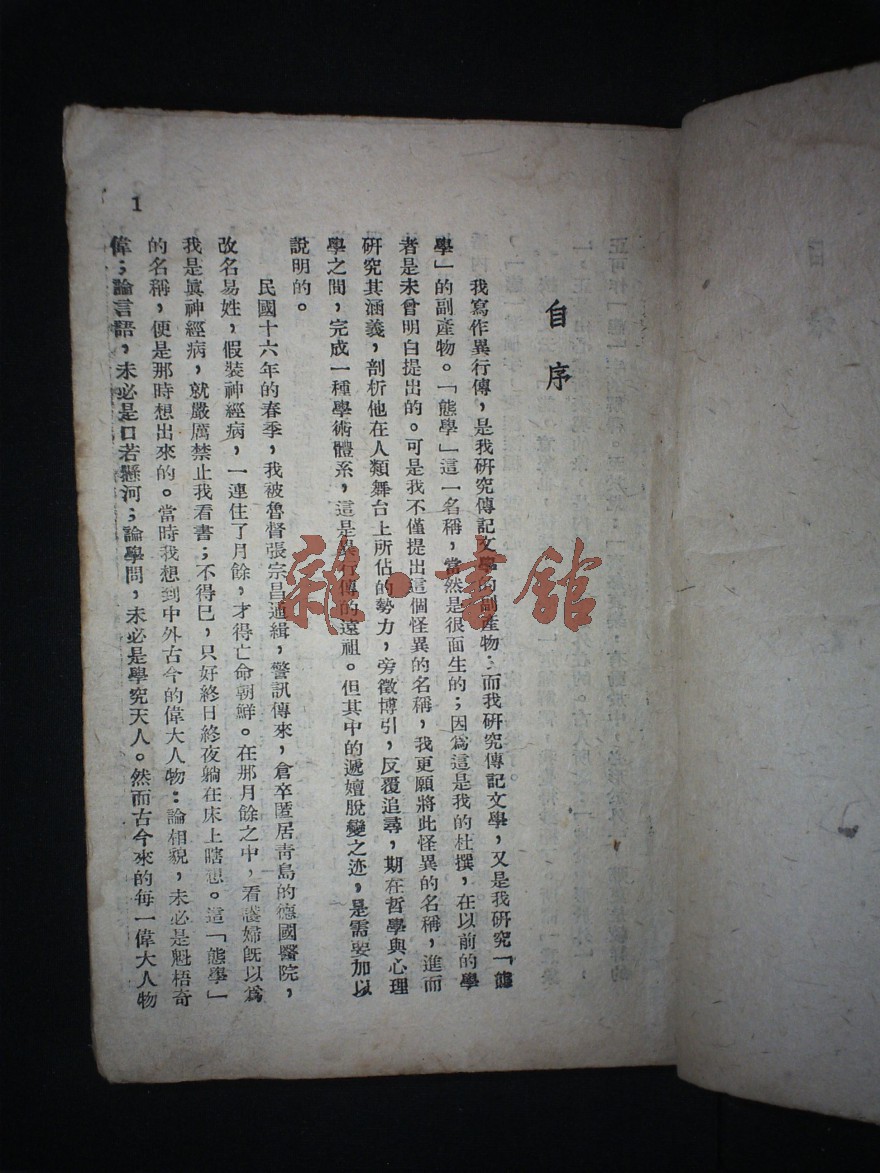 自序
我寫作異行傳，是我研究傳記文學的副產物；而我研究傳記文學，又是我研究「態
學」的副產物。「態學」這一名稱，當然是很面生的；因爲這是我的杜撰，在以前的學
者是未曾明白提出的。可是我不僅提出這個怪異的名稱，我更願將此怪異的名稱，進而
研究其涵義，剖析他在人類舞台上所佔的勢力，旁徵博引，反覆追尋，期在哲學與心理
學之間，完成一種學術體系，這是異行傳的遠祖。但其中的遞嬗脫變之迹，是需要加以
說明的。
民國十六年的春季，我被魯督張宗昌通緝，警訊傳來，倉卒匿居靑島的德國醫院，
改名易姓，假裝神經病，一連住了月餘，才得亡命朝鮮。在那月餘之中，看護婦旣以爲
我是眞神經病，就嚴厲禁止我看書；不得已，只好終日終夜躺在床上瞎想。這「態學」
的名稱，便是那時想出來的。當時我想到中外古今的偉大人物：論相貌，未必是魁梧奇
偉；論言語，未必是口若懸河；論學問，未必是學究天人。然而古今來的每一偉大人物
1
雜·書館